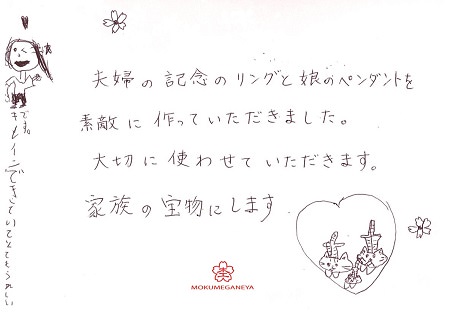 夫婦の記念のリングと娘のペンダントを
素敵に作っていただきました。
大切に使わせていただきます。
家族の宝物にします
キレイにできていてとてもうれしい
です。
MOKUMEGANEYA